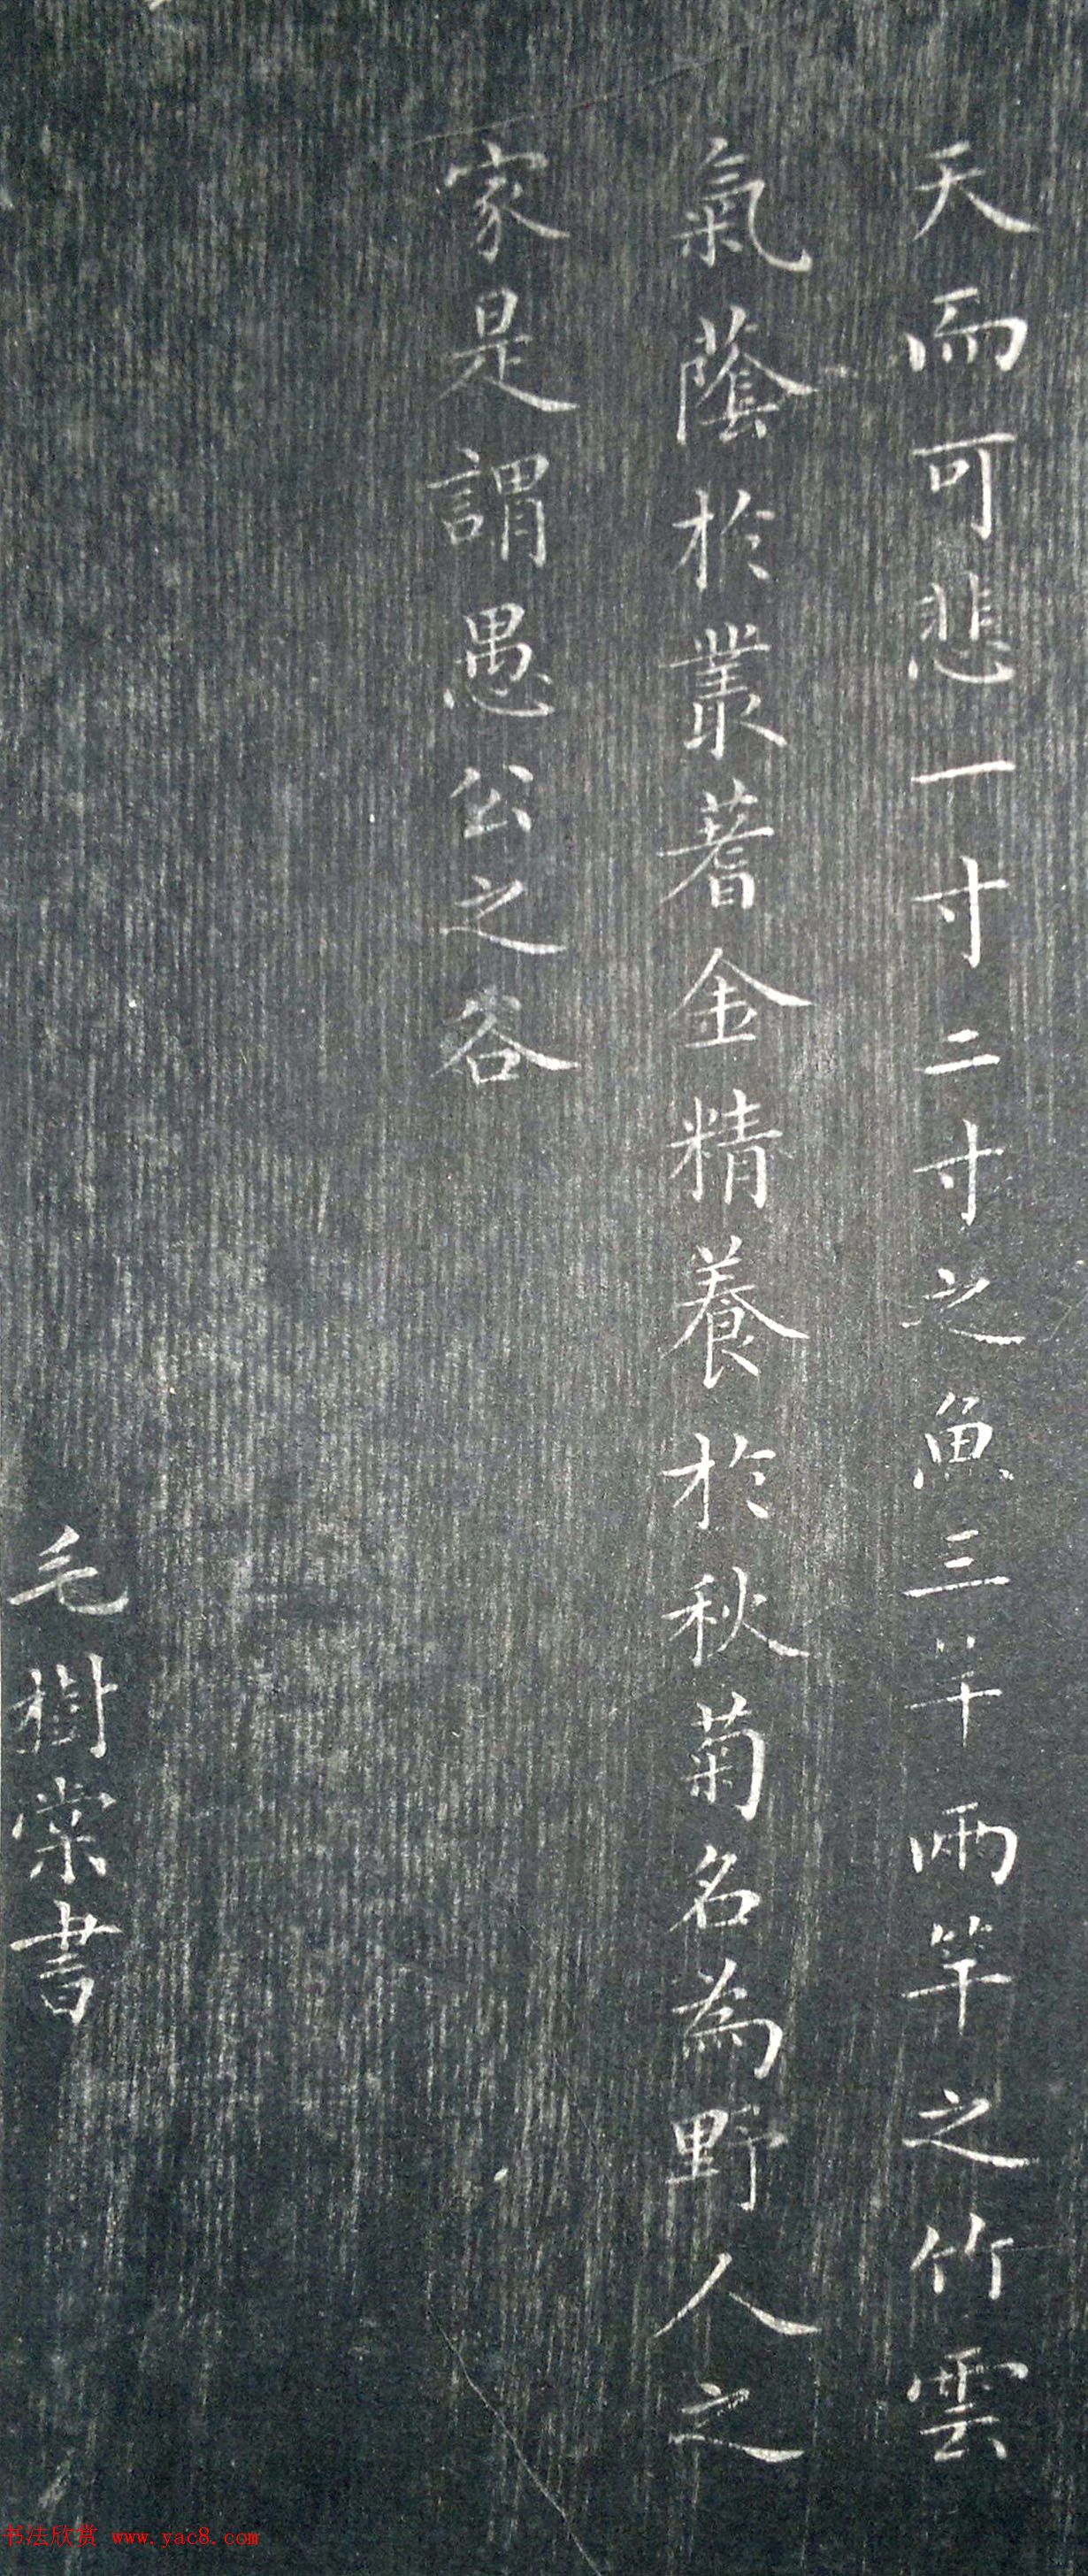 天而可悲一寸二寸之魚三竿兩竿之竹雲
氣蔭於叢蓍金精養於秋菊名為野人之
家是謂愚公之谷
毛樹棠書
书法欣赏 www.yac8.com